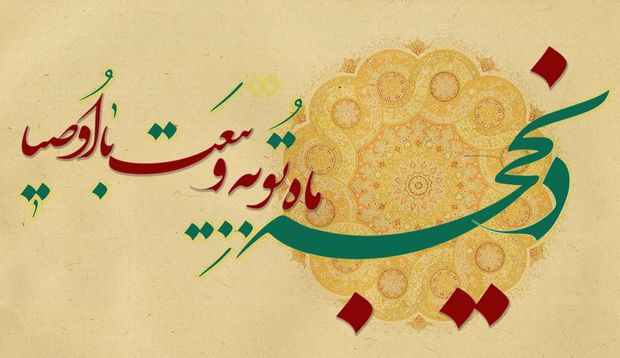 ذیحجه
ماه توبه و بیعت با اوصیا